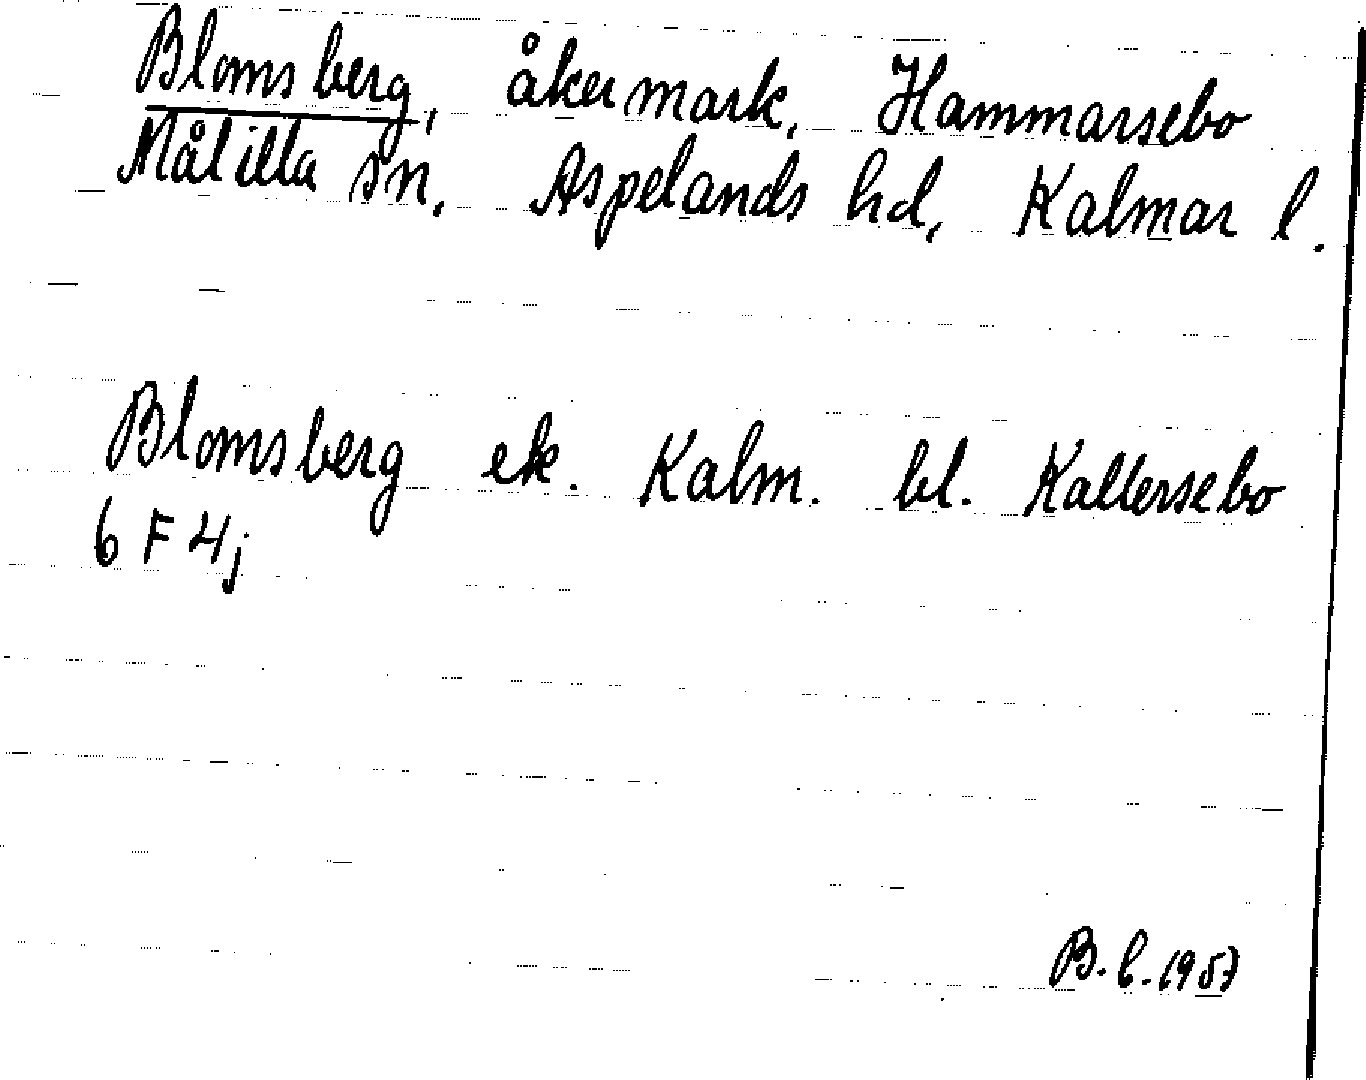 Blomsberg, åkermark, Hammarsebo
Målilla sn, Aspelands hd, Kalmar l.
Blomsberg ek. Kalm. bl. Kallersebo
6 F 4j
B. L. 1957